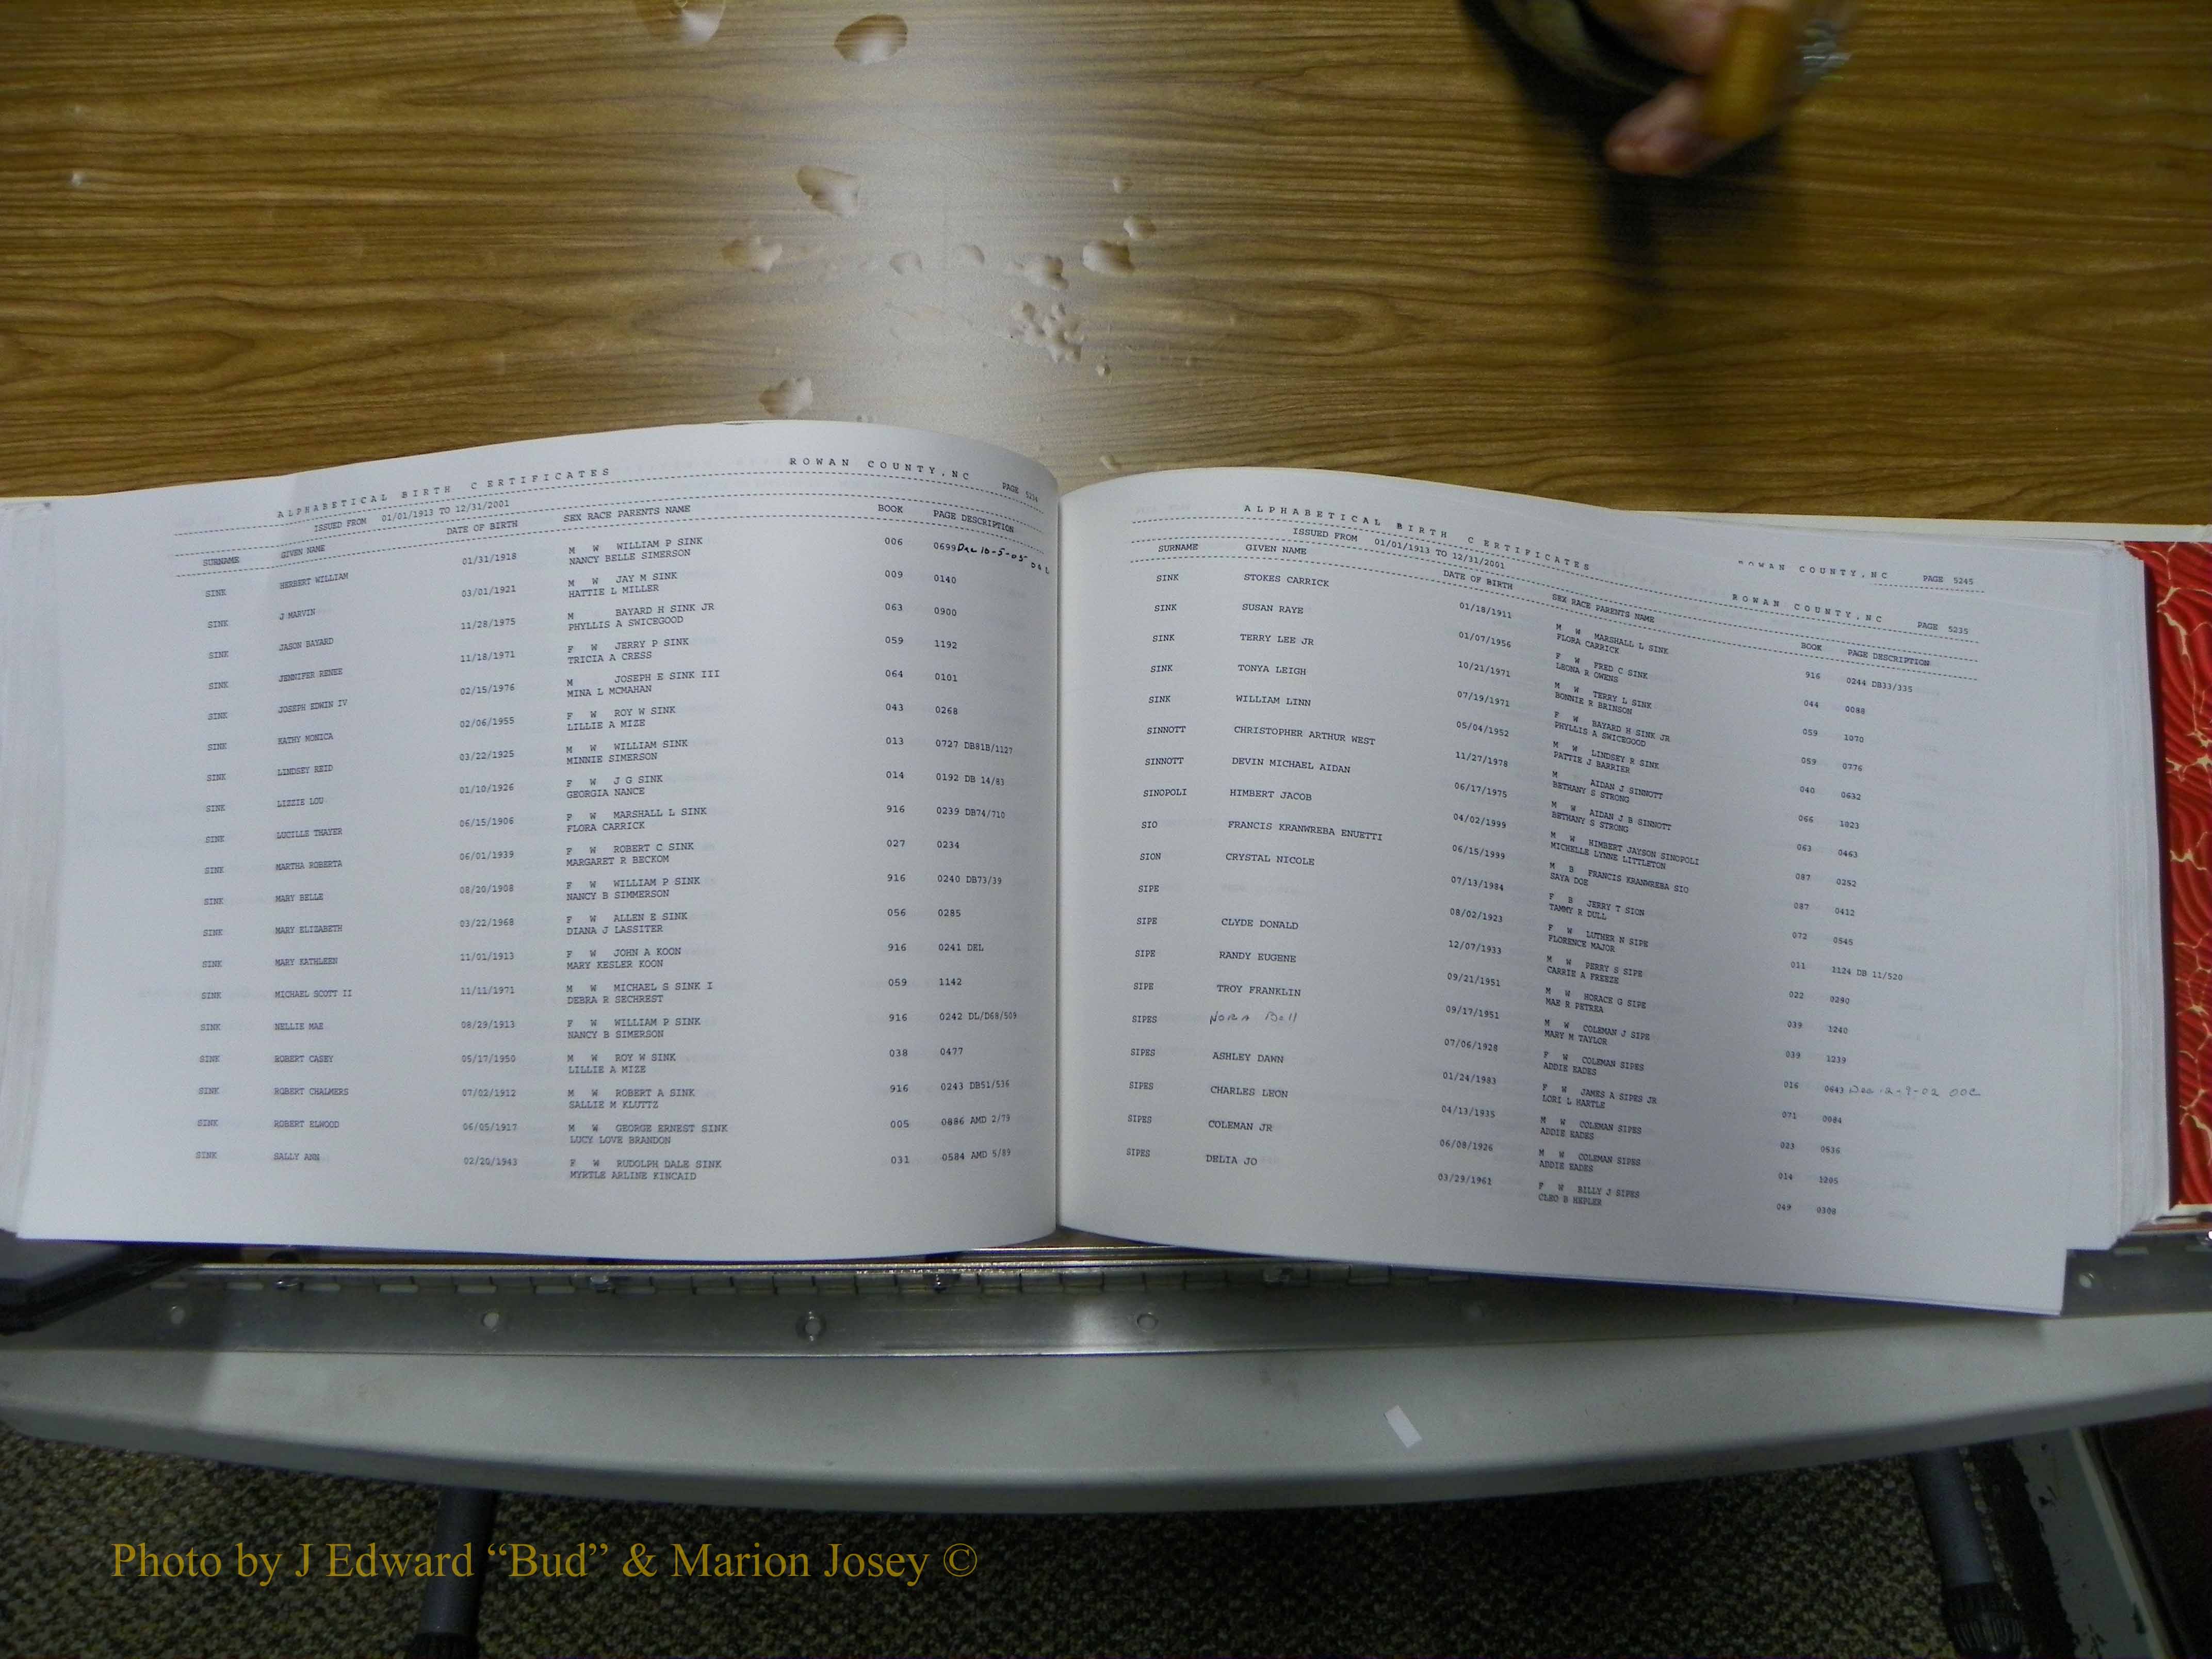 ALPHABETICAL BIRTH CERTIFICATES ROWAN COUNTY, NC PAGE 5234
ISSUED FROM 01/01/1913 TO 12/31/2001
SURNAME GIVEN NAME DATE OF BIRTH SEX RACE PARENTS NAME BOOK PAGE DESCRIPTION
SINK HERBERT WILLIAM 01/31/1918 M W WILLIAM P SINK 006 0699
NANCY BELLE SIMERSON
SINK J MARVIN 03/01/1921 M W JAY M SINK 009 0140
HATTIE L MILLER
SINK JASON BAYARD 11/28/1975 M BAYARD H SINK JR 063 0900
PHYLLIS A SWICEGOOD
SINK JENNIFER RENEE 11/18/1971 F W JERRY P SINK 059 1192
TRICIA A CRESS
SINK JOSEPH EDWIN IV 02/15/1976 M JOSEPH E SINK III 064 0101
MINA L MCMAHAN
SINK KATHY MONICA 02/06/1955 F W ROY W SINK 043 0268
LILLIE A MIZE
SINK LINDSEY REID 03/22/1925 M W WILLIAM SINK 013 0727 DB81B/1127
MINNIE SIMERSON
SINK LIZZIE LOU 01/10/1926 F W J G SINK 014 0192 DB 14/83
GEORGIA NANCE
SINK LUCILLE THAYER 06/15/1906 F W MARSHALL L SINK 916 0239 DB74/710
FLORA CARRICK
SINK MARTHA ROBERTA 06/01/1939 F W ROBERT C SINK 027 0234
MARGARET R BECKOM
SINK MARY BELLE 08/20/1908 F W WILLIAM P SINK 916 0240 DB73/39
NANCY B SIMMERSON
SINK MARY ELIZABETH 03/22/1968 F W ALLEN E SINK 056 0285
DIANA J LASSITER
SINK MARY KATHLEEN 11/01/1913 F W JOHN A KOON 916 0241 DEL
MARY KESLER KOON
SINK MICHAEL SCOTT II 11/11/1971 M W MICHAEL S SINK I 059 1142
DEBRA R SECHREST
SINK NELLIE MAE 08/29/1913 F W WILLIAM P SINK 916 0242 DL/D68/509
NANCY B SIMERSON
SINK ROBERT CASEY 05/17/1950 M W ROY W SINK 038 0477
LILLIE A MIZE
SINK ROBERT CHALMERS 07/02/1912 M W ROBERT A SINK 916 0243 DB51/536
SALLIE M KLUTTZ
SINK ROBERT ELWOOD 06/05/1917 M W GEORGE ERNEST SINK 005 0886 AMD 2/79
LUCY LOVE BRANDON
SINK SALLY ANN 02/20/1943 F W RUDOLPH DALE SINK 031 0584 AMD 5/89
MYRTLE ARLINE KINCAID
ROWAN COUNTY, NC PAGE 5245
ALPHABETICAL BIRTH CERTIFICATES ROWAN COUNTY, NC PAGE 5235
ISSUED FROM 01/01/1913 TO 12/31/2001
SURNAME GIVEN NAME DATE OF BIRTH SEX RACE PARENTS NAME BOOK PAGE DESCRIPTION
SINK STOKES CARRICK 01/18/1911 M W MARSHALL L SINK 916 0244 DB33/335
FLORA CARRICK
SINK SUSAN RAYE 01/07/1956 F W FRED C SINK 044 0088
LEONA R OWENS
SINK TERRY LEE JR 10/21/1971 M W TERRY L SINK 059 1070
BONNIE R BRINSON
SINK TONYA LEIGH 07/19/1971 F W BAYARD H SINK JR 059 0776
PHYLLIS A SWICEGOOD
SINK WILLIAM LINN 05/04/1952 M W LINDSEY R SINK 040 0632
PATTIE J BARRIER
SINNOTT CHRISTOPHER ARTHUR WEST 11/27/1978 M AIDAN J SINNOTT 066 1023
BETHANY S STRONG
SINNOTT DEVIN MICHAEL AIDAN 06/17/1975 M W AIDAN J B SINNOTT 063 0463
BETHANY S STRONG
SINOPOLI HIMBERT JACOB 04/02/1999 M W HIMBERT JAYSON SINOPOLI 087 0252
MICHELLE LYNNE LITTLETON
SIO FRANCIS KRANWREBA ENUETTI 06/15/1999 M B FRANCIS KRANWREBA SIO 087 0412
SAYA DOE
SION CRYSTAL NICOLE 07/13/1984 F B JERRY T SION 072 0545
TAMMY R DULL
SIPE 08/02/1923 F W LUTHER N SIPE 011 1124 DB 11/520
FLORENCE MAJOR
SIPE CLYDE DONALD 12/07/1933 M W PERRY S SIPE 022 0290
CARRIE A FREEZE
SIPE RANDY EUGENE 09/21/1951 M W HORACE G SIPE 039 1240
MAE R PETREA
SIPE TROY FRANKLIN 09/17/1951 M W COLEMAN J SIPE 039 1239
MARY M TAYLOR
SIPES NORA Bell 07/06/1928 F W COLEMAN SIPES 016 0643 12-9-02
ADDIE EADES
SIPES ASHLEY DAWN 01/24/1983 F W JAMES A SIPES JR 071 0084
LORI L HARTLE
SIPES CHARLES LEON 04/13/1935 M W COLEMAN SIPES 023 0536
ADDIE EADES
SIPES COLEMAN JR 06/08/1926 M W COLEMAN SIPES 014 1205
ADDIE EADES
SIPES DELIA JO 03/29/1961 F W BILLY J SIPES 049 0308
CLEO B HEPLER
Photo by J Edward “Bud” & Marion Josey ©